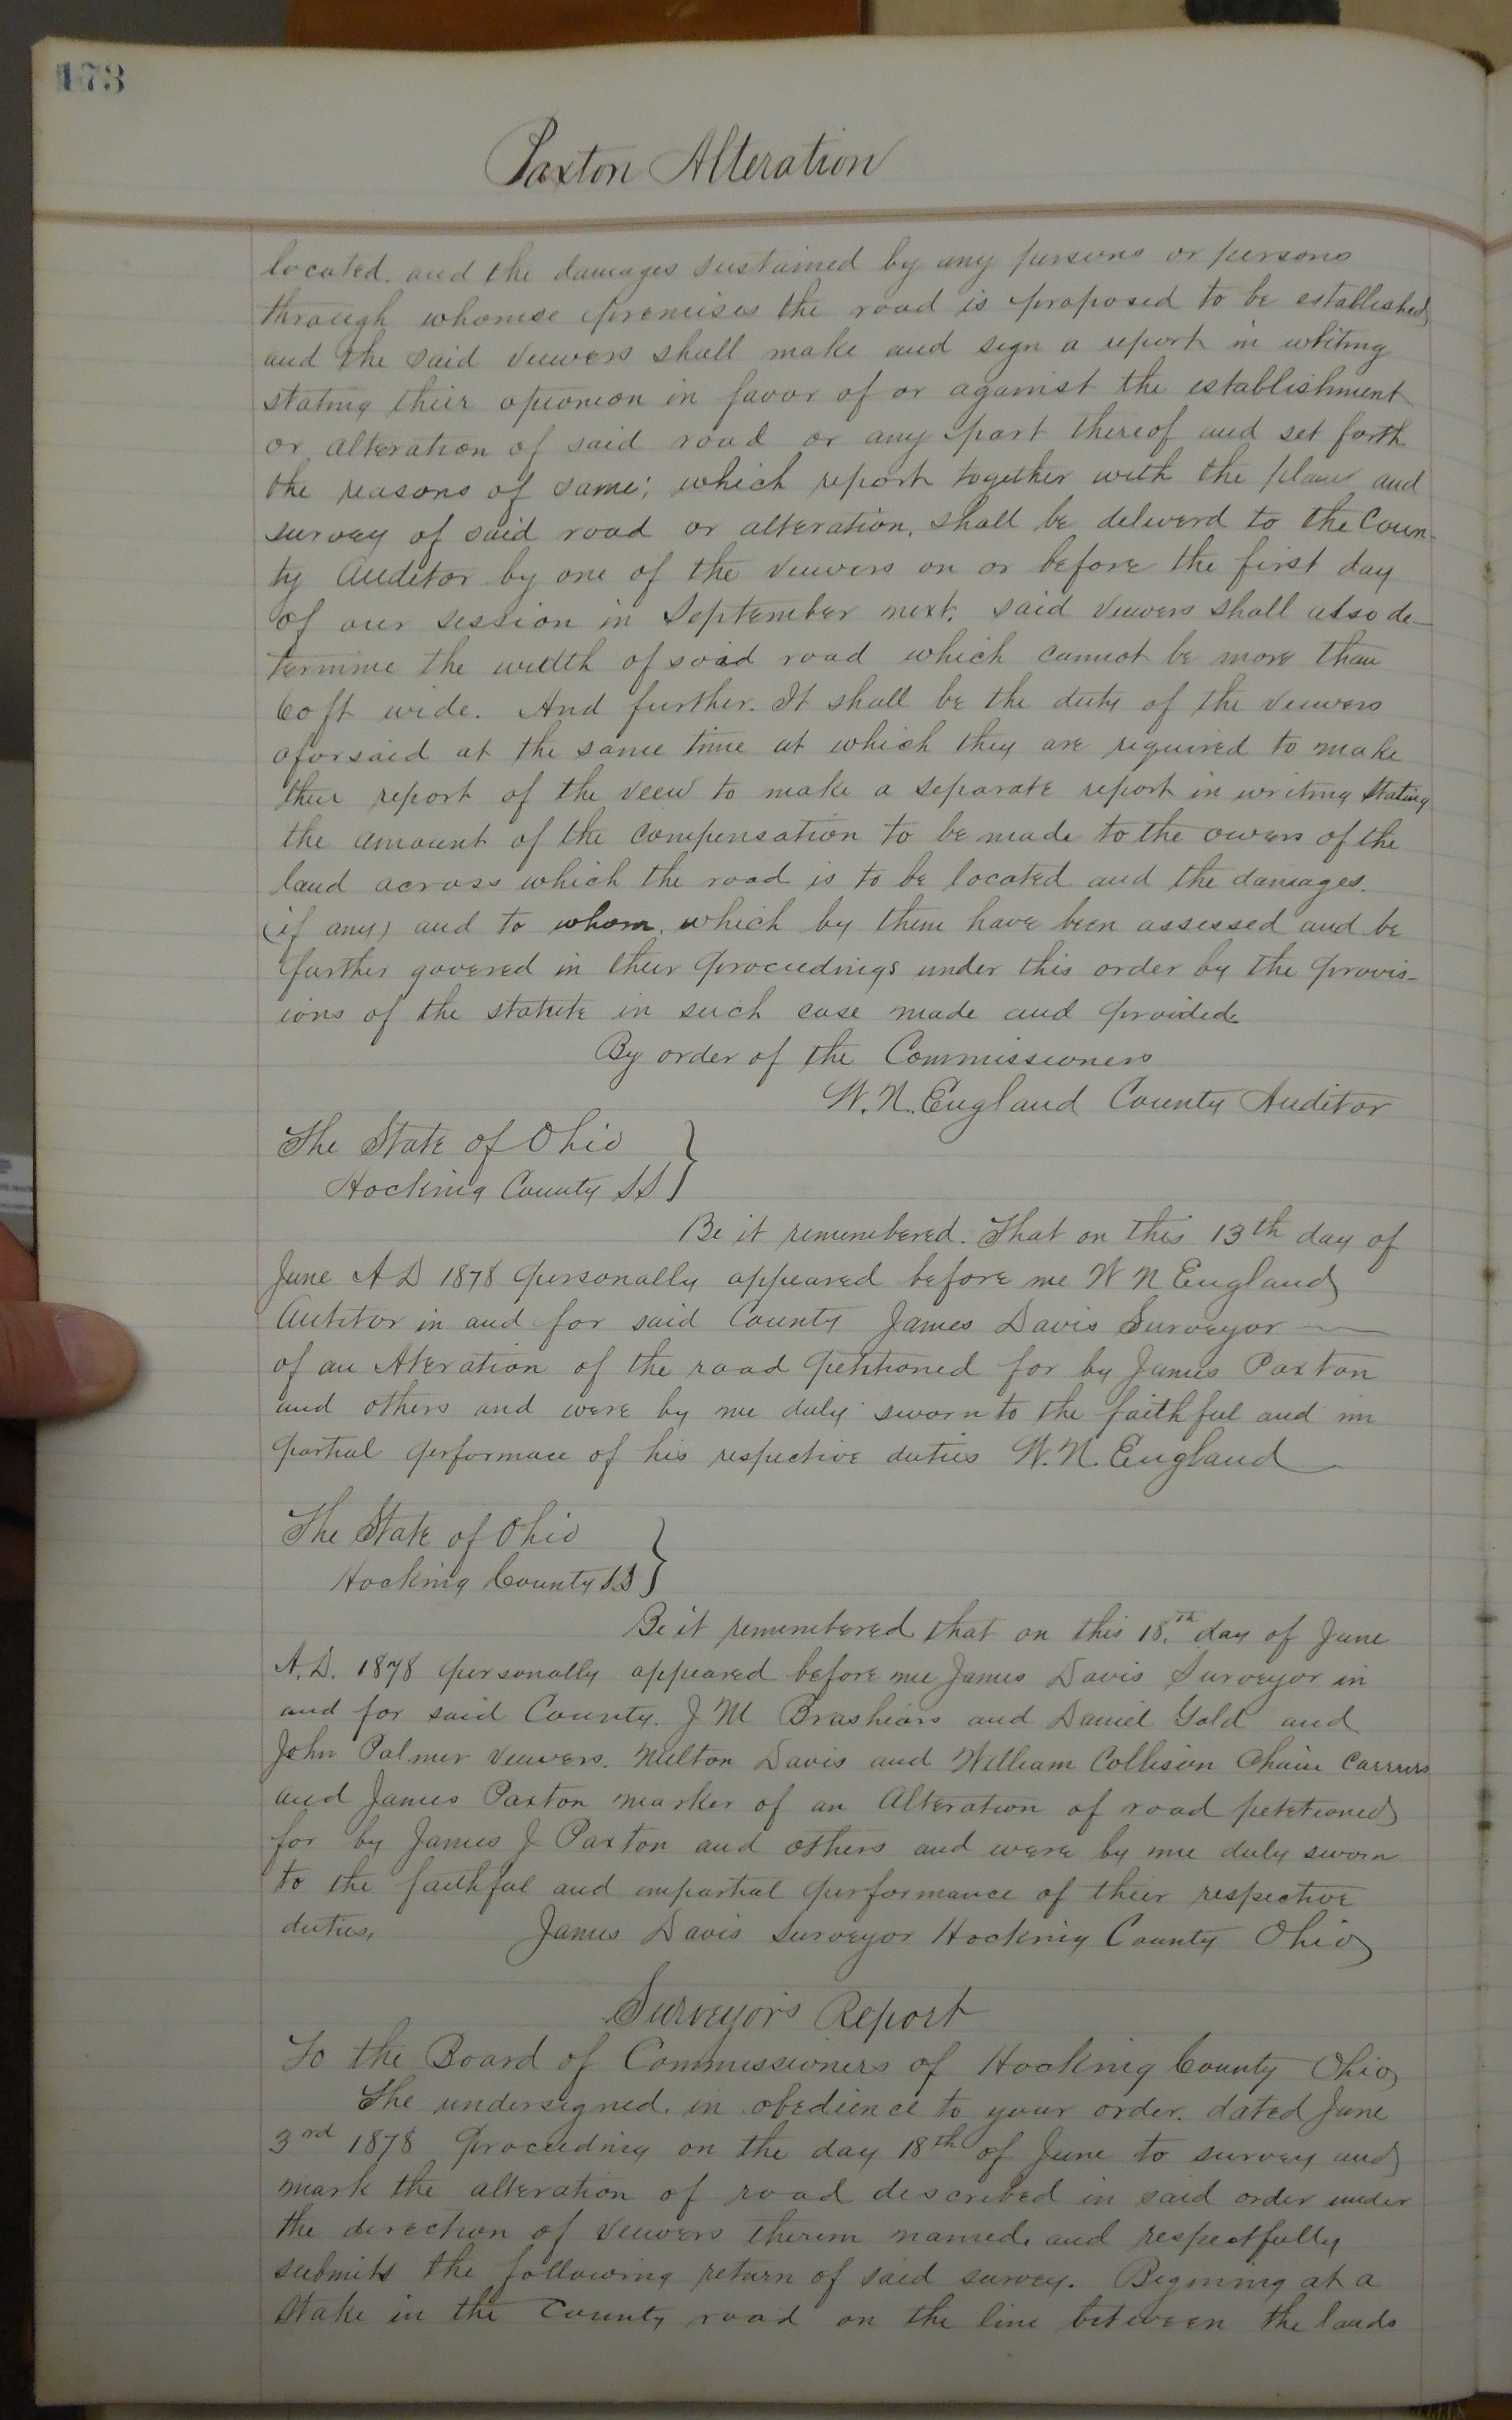 173
Paxton Alteration
located. and the damages sustained by any persons or persons
through whomse premises the road is proposed to be established
and the said viewers shall make and sign a report in writing
stating their opionion in favor of or against the establishment
or alteration of said road or any part thereof and set forth
the reasons of same; which report together with the plan and
survey of said road or alteration, shall be deliverd to the Coun-
ty Auditor by one of the viewers on or before the first day
of our session in September next. said viewers shall also de-
termine the width of said road which cannot be more than
60 ft wide. And further. It shall be the duty of the viewers
aforsaid at the same time at which they are required to make
their report of the view to make a separate report in writing stating
the amount of the compensation to be made to the owers of the
land across which the road is to be located and the damages.
(if any) and to whom. which by them have been assessed and be
further govered in their proceedings under this order by the provis-
ions of the statute in such case made and provided
By order of the Commissioners
W. N. England County Auditor
The State of Ohio
Hocking County SS }
Be it remembered. That on this 13th day of
June A D 1878 personally appeared before me W N England
Autitor in and for said County James Davis Surveyor —
of an Ateration of the road petitioned for by James Paxton
and others and were by me duly sworn to the faithful and im
partial performace of his respective duties W. N. England
The State of Ohio
Hocking County SS }
Be it remembered that on this 18.th day of June
A.D. 1878 personally appeared before me James Davis Surveyor in
and for said County. J M Brashiars and Daniel Gold and
John Palmer viewers. Milton Davis and William Collison Chain Carrers
and James Paxton marker of an Alteration of road petetioned
for by James J Paxton and others and were by me duly sworn
to the faithful and impartial performance of their respective
duties, James Davis Surveyor Hocking County Ohio
Surveyors Report
To the Board of Commissioners of Hocking County Ohio
The undersigned. in obedience to your order. dated June
3rd 1878 proceeding on the day 18th of June to survey and
mark the alteration of road described in said order under
the direction of viewers therein named. and respectfully
submits the following return of said survey. Begining at a
stake in the County road on the line between the lands